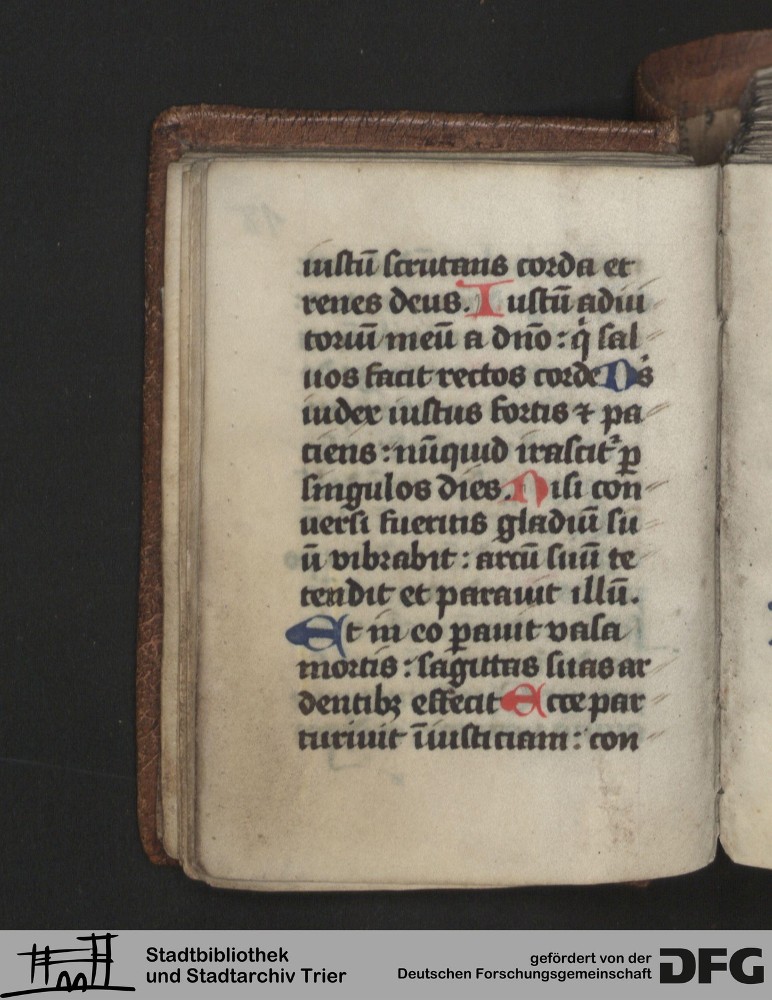 iustū scrutans corda et
renes deus. Iustū adiu
toriū meū a dño: q̇ sal
uos facit rectos corde Ds̓
iudex iustus fortis ⁊ pa
ciens: nūquid irascit᷑ ꝑ
singulos dies. Nisi con
uersi fueritis gladiū su
ū vibrabit: arcū suū te
tendit et parauit illū.
Et in eo ꝑauit vasa
mortis: sagittas suas ar
dentibꝫ effecit Ecce par
turiuit īiusticiam: con
Stadtbibliothek
und Stadtarchiv Trier
gefördert von der
Deutschen Forschungsgemeinschaft DFG